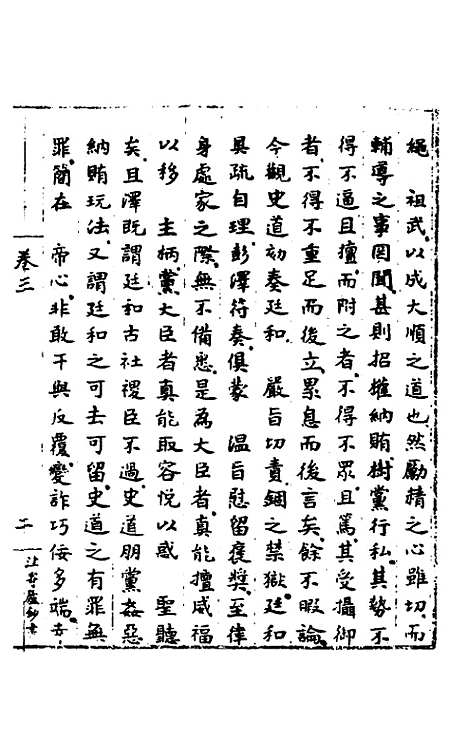 繩　祖武以成大順之道也然勵精之心雖切而
輔導之事罔聞甚則招權納賄樹黨行私其勢不
得不逼且擅而附之者不得不眾且篤其受攝御
者不得不重足而後立累息而後言矣餘不暇論
今觀史道劾奏廷和　嚴旨切責錮之禁獄廷和
具疏自理彭澤符奏俱蒙　溫旨慰留褒獎至律
身處家之際無不備悉是為大臣者真能擅威福
以移　主柄黨大臣者真能取容悅以惑　聖聽
矣且澤既謂廷和古社稷臣不過史道朋黨姦惡
納賄玩法又謂廷和之可去可留史道之有罪無
罪簡在　帝心非敢干與反覆變詐巧佞多端去
卷三　二